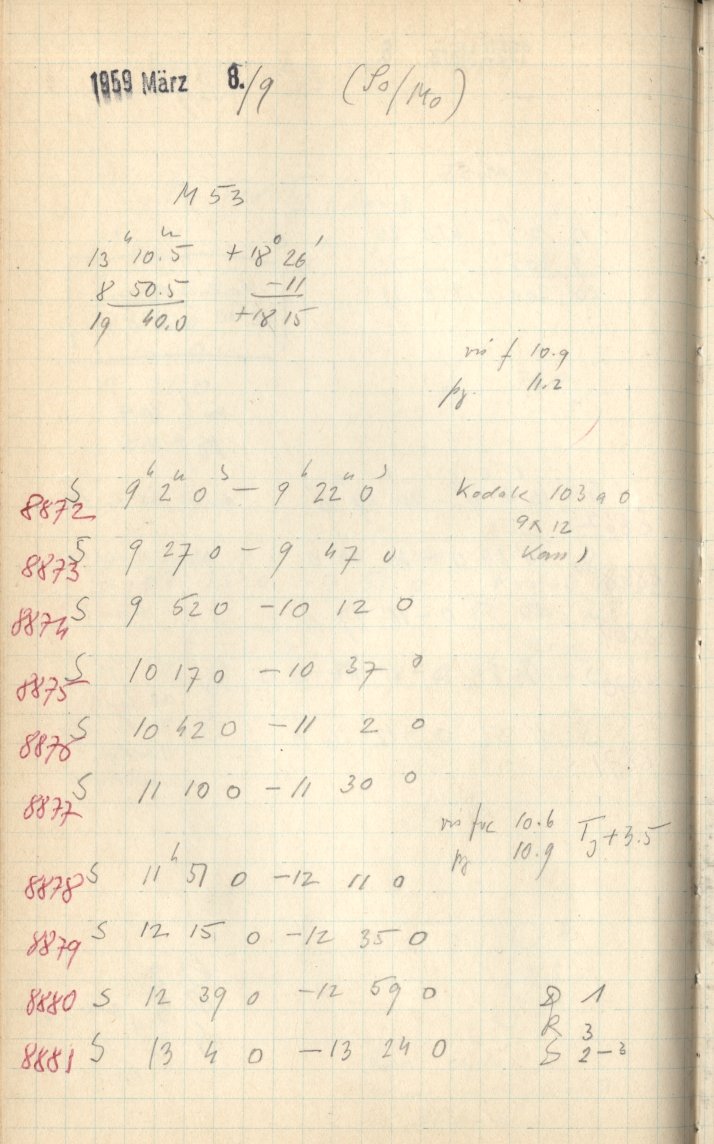 1959 März 8./9 (So/Mo)
M 53
13 h 10.5 m + 18° 26'
8 50.5 -11
19 40.0 +18 15
vis f 10.9
pg 11.2
8872 S 9h 2m 0s - 9h 22m 0s Kodak 103 a 0
9x12
8873 S 9 27 0 - 9 47 0
8874 S 9 52 0 - 10 12 0
8875 S 10 17 0 - 10 37 0
8876 S 10 42 0 - 11 2 0
8877 S 11 10 0 - 11 30 0
vis foc 10.6 T +3.5
pg 10.9
8878 S 11h 51 0 - 12 11 0
8879 S 12 15 0 - 12 35 0
8880 S 12 39 0 - 12 59 0 D 1
R 3
8881 S 13 4 0 - 13 24 0 S 2-3